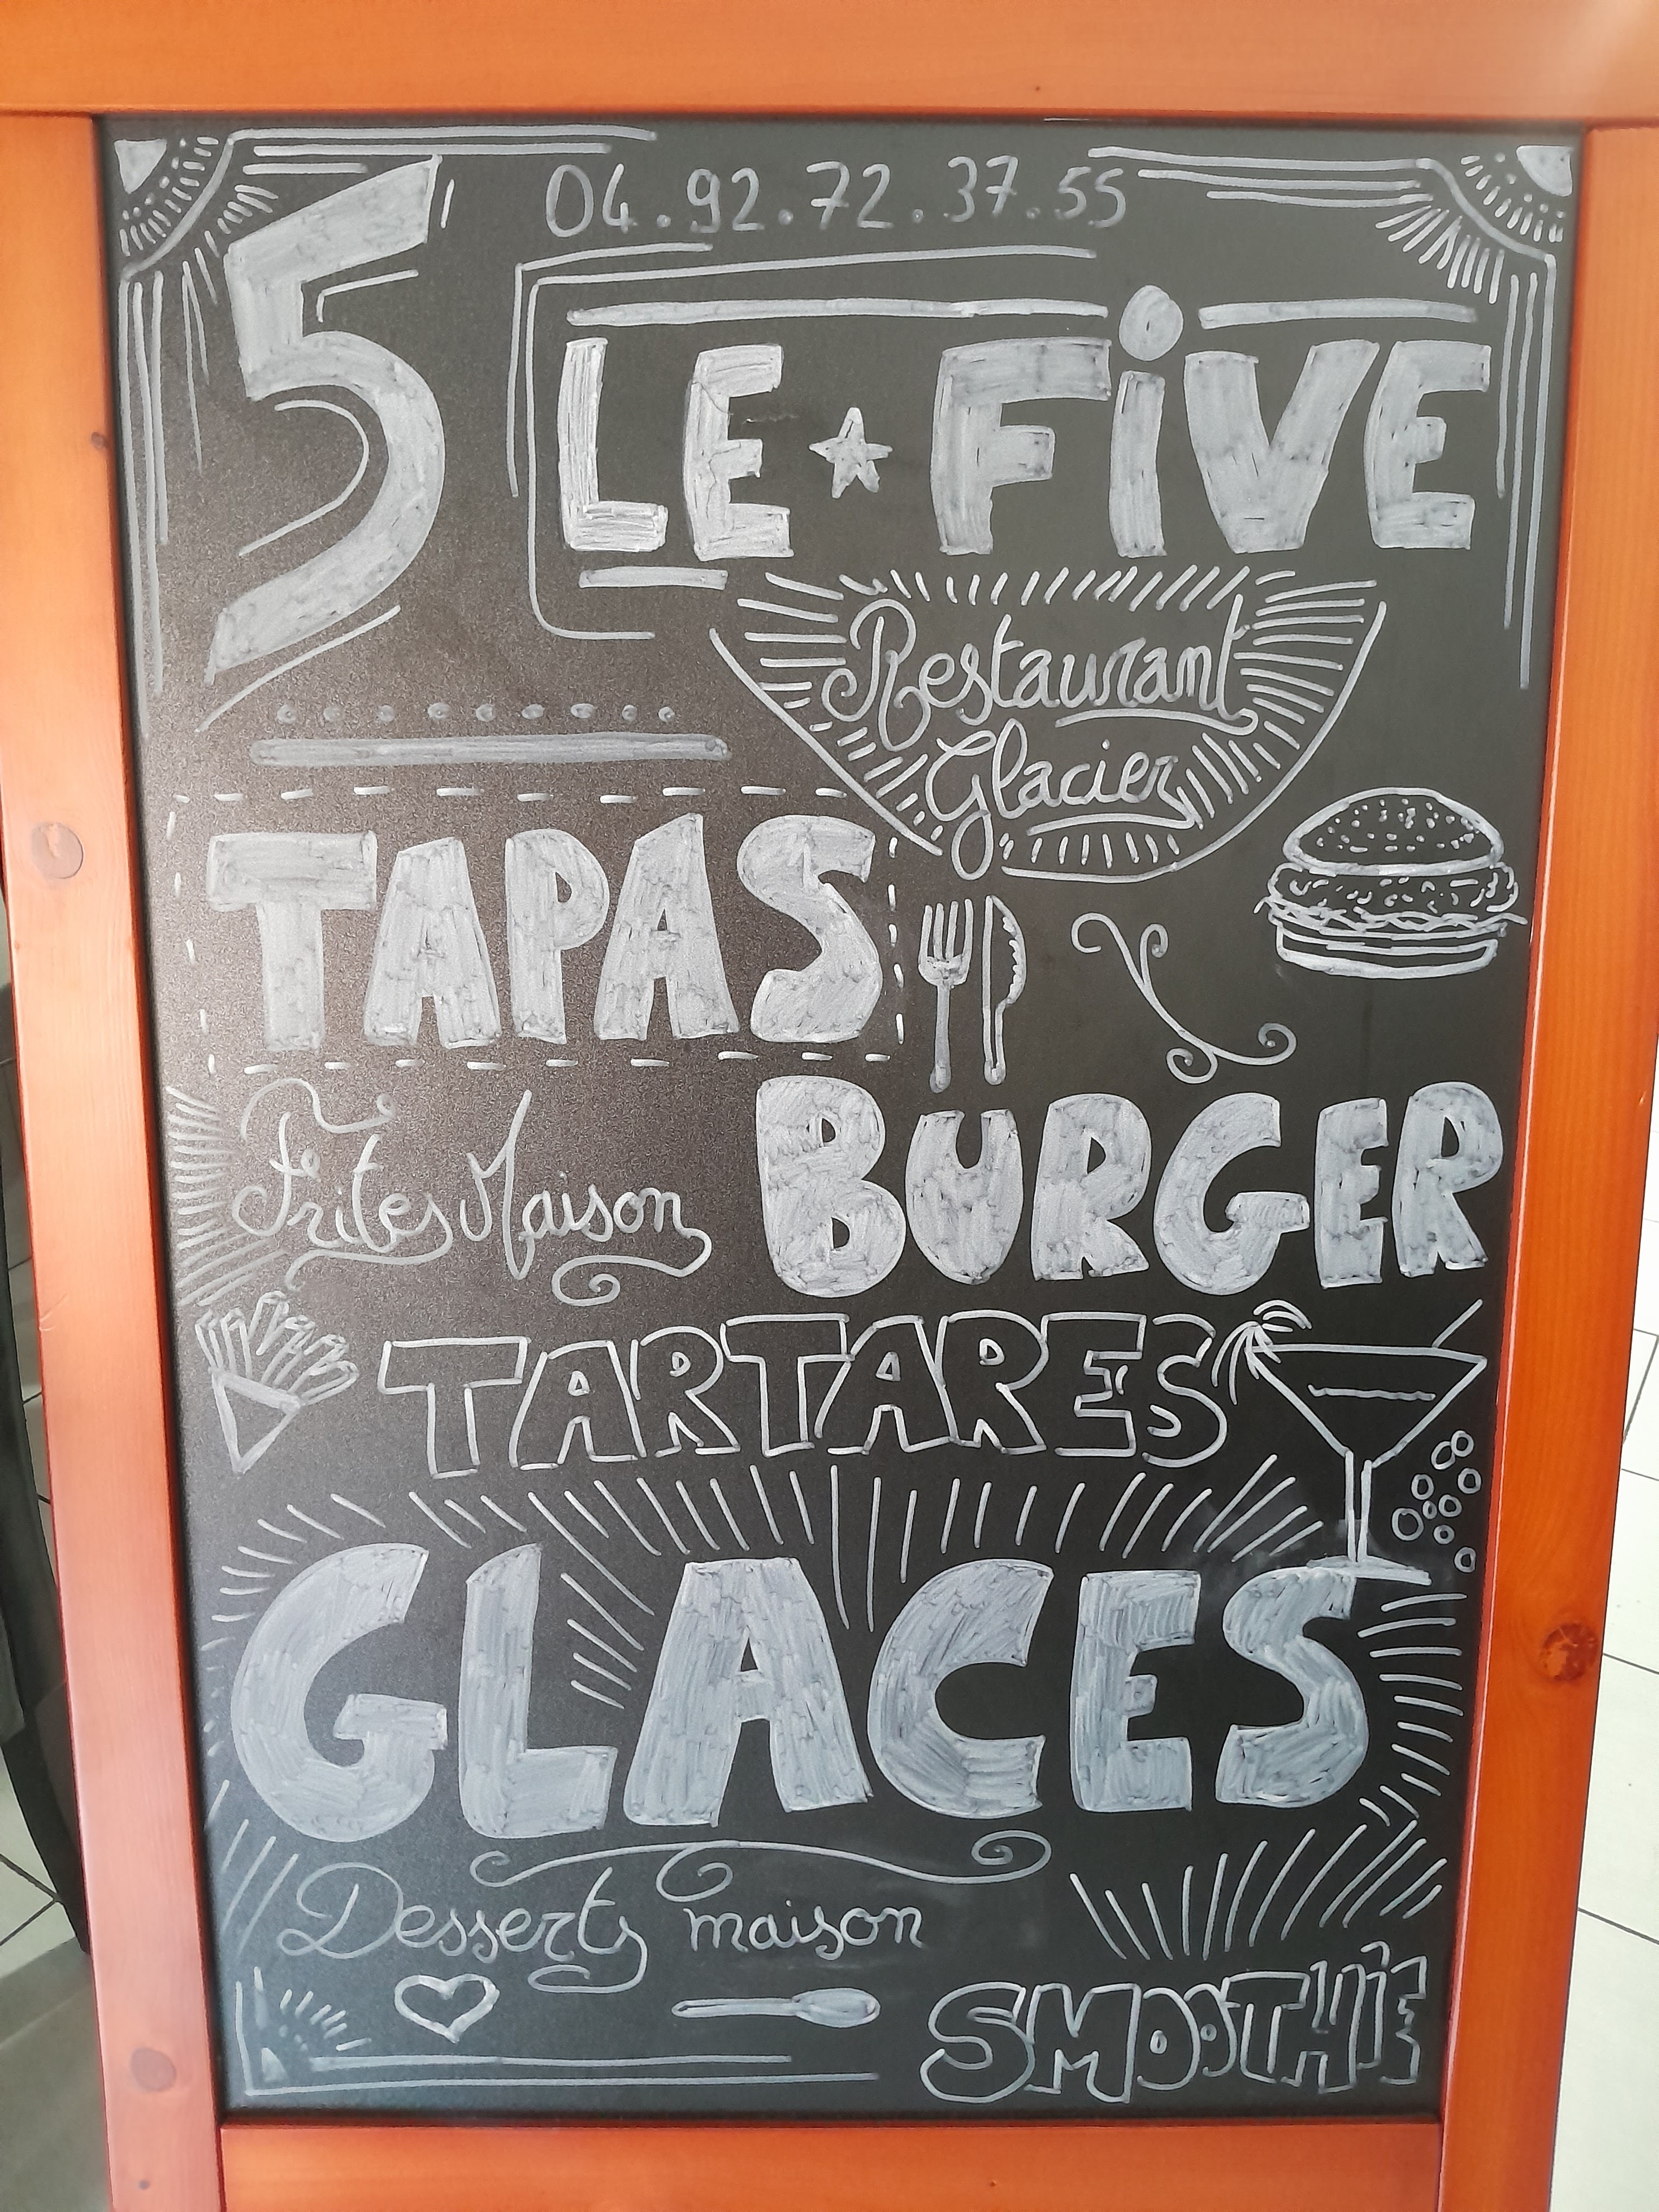 04.92.72.37.55
5 LE FiVE
Restaurant
Glacier
TAPAS
Frites Maison
BURGER
TARTARES
GLACES
Desserts maison
SMOOTHiE